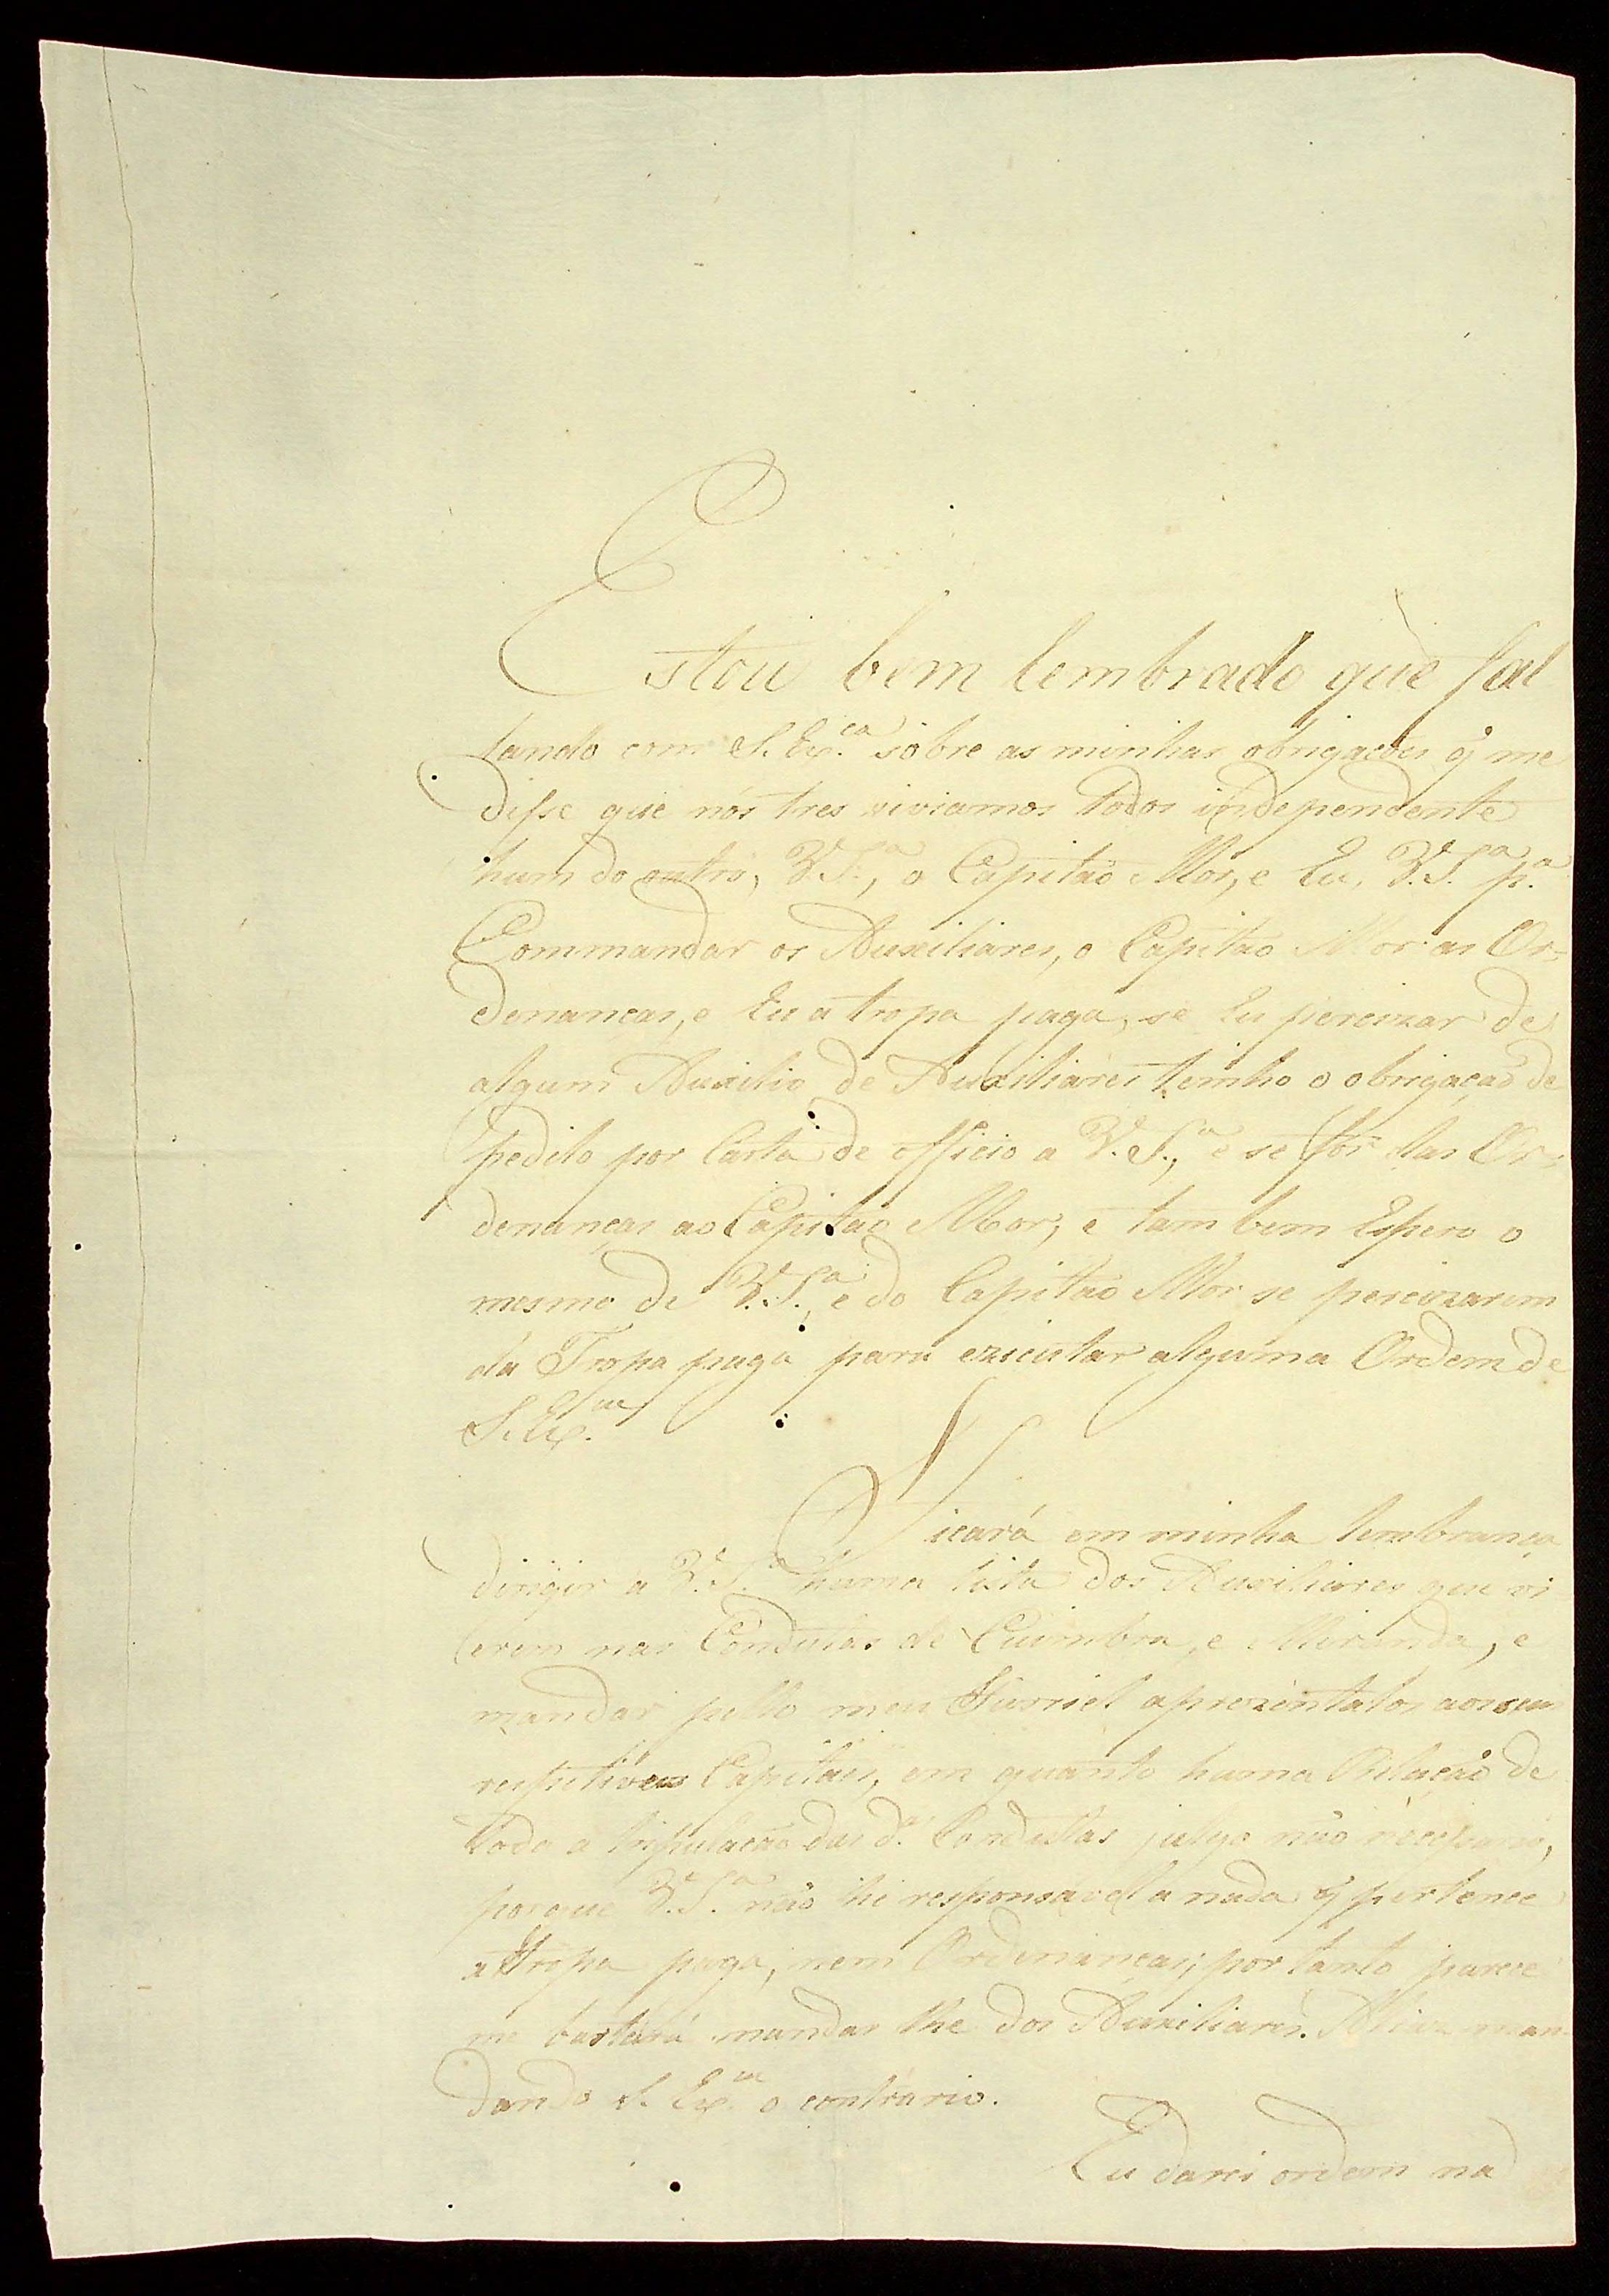 Estou bem lembrado que fal
lando com S. Ex.ca sobre as minhas obrigaçoes q̃ me
disse que nós tres viviamos todos independente
hum do outro, V.S.a, o Capitaõ Mór, e Eu, V.S.a p.a
Commandar os Auxiliares, o Capitaõ Mor as Or-
denanças, e Eu a tropa paga, se Eu percizar de
algum Auxilio de Auxiliares tenho o obrigaçaõ de
pedilo por Carta de officio a V.S.a, e se for das Or-
denanças ao Capitaõ Mor, e tam bem Espero o
mesmo de V.S.a, e do Capitaõ Mór se percizarem
da Tropa paga para ezicutar alguma Ordem de
S. Ex.ca
Ficará em minha lembrança
dirigir a V.S.a huma lista dos Auxiliares que vi
erem nas Condutas de Cuimbra, e Miranda, e
mandar pello meu Furriel aprezentalos aos seus
respetivos Capitais, em quanto huma Relaçaõ de
toda a tripulaçaõ das d.as Condutas julgo naõ necessario,
porque V.S.a naõ he responsavel a nada q̃ pertence
a Tropa paga, nem Ordenanças; por tanto parece
me bastará mandar lhe dos Auxiliares. Aliaz man-
dando S. Ex.ca o contrario.
Eu darei ordem na